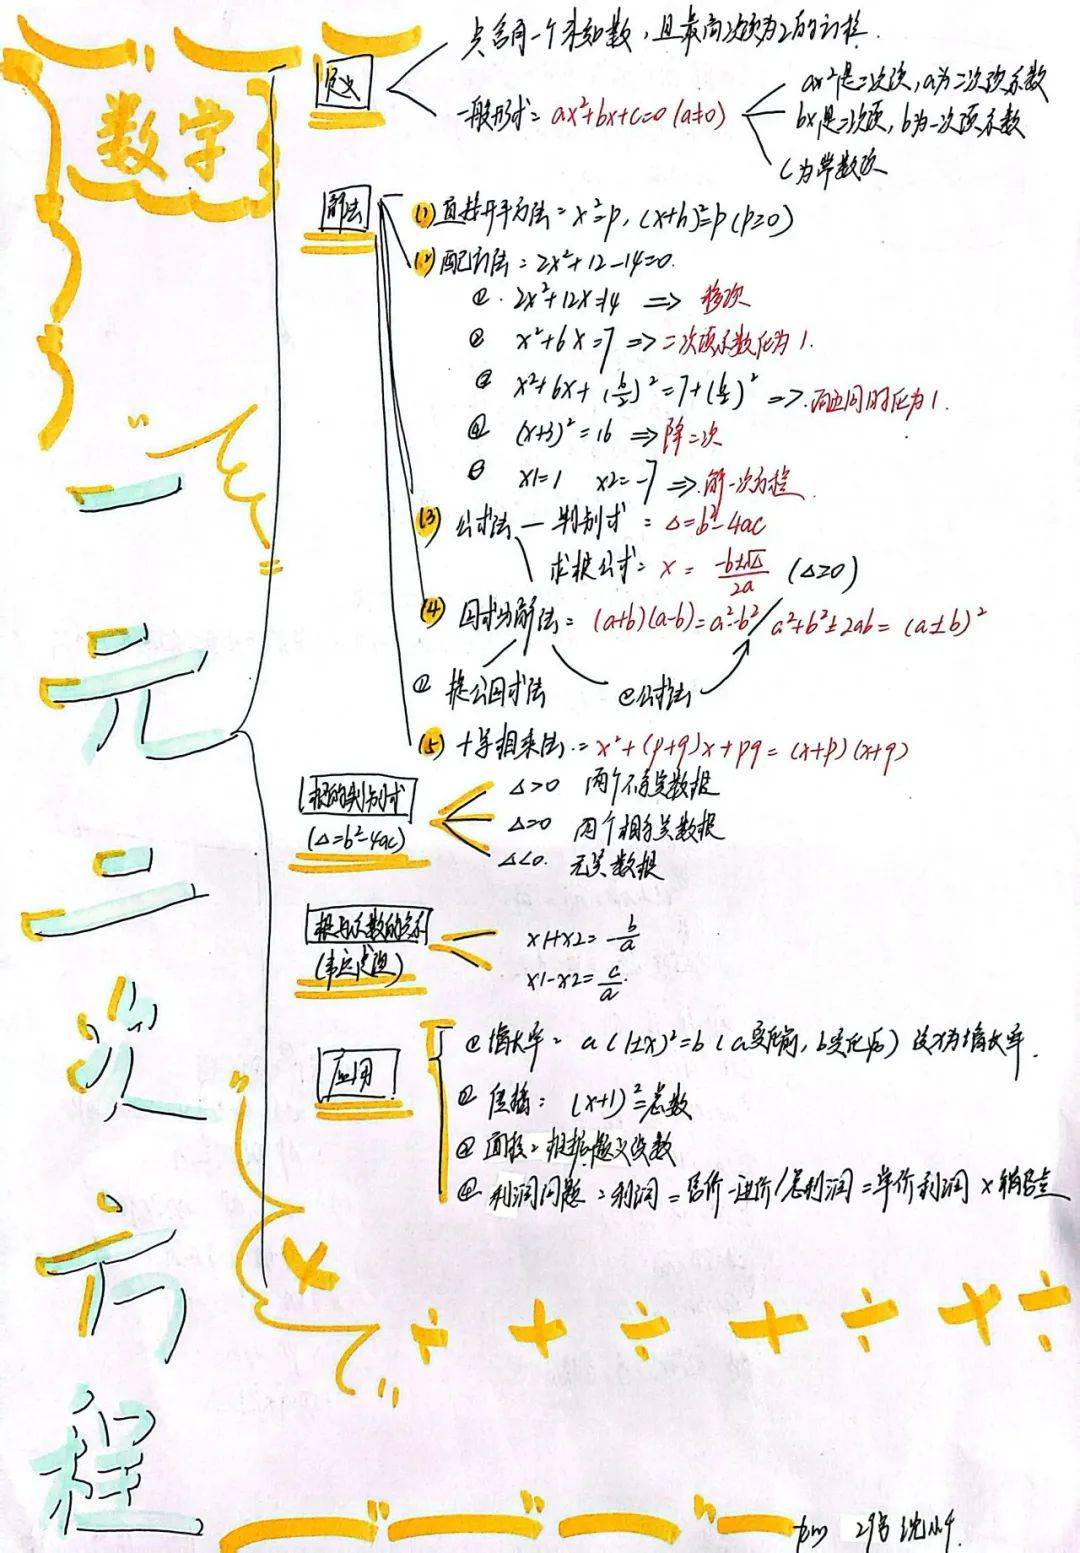 数学
一元二次方程
定义
只含有一个未知数，且最高次项为2的方程.
一般形式: ax²+bx+c=0 (a≠0)
ax²是二次项, a为二次项系数
bx是一次项, b为一次项系数
c为常数项
解法
(1) 直接开平方法: x²=p, (x+h)²=p (p≥0)
(2) 配方法: 2x²+12-14=0.
① 2x²+12x=14 => 移项
② x²+6x=7 => 二次项系数化为1.
③ x²+6x+(b/2)²=7+(b/2)² => 两边同时化为1.
④ (x+3)²=16 => 降二次
⑤ x1=1 x2=-7 => 解一次方程
(3) 公式法 — 判别式: Δ=b²-4ac
求根公式: x = (-b±√Δ)/2a (Δ≥0)
(4) 因式分解法: (a+b)(a-b)=a²-b² / a²+b²±2ab=(a±b)²
① 提公因式法 ②公式法
(5) 十字相乘法: x²+(p+q)x+pq=(x+p)(x+q)
根的判别式
(Δ=b²-4ac)
Δ>0 两个不等实数根
Δ=0 两个相等实数根
Δ<0. 无实数根
根与系数的关系
(韦达定理)
x1+x2=-b/a
x1-x2=c/a.
应用
① 增长率: a(1±x)²=b (a变化前, b变化后) 设x为增长率.
② 传播: (x+1)²=总数
③ 面积: 根据题义设数
④ 利润问题: 利润=售价-进价/总利润=单价利润×销售量
29号